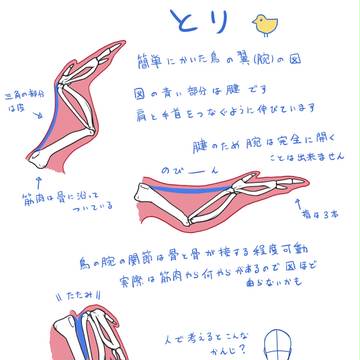 とり
簡単にかいた鳥の翼(腕)の図
三角の部分
は皮
図の青い部分は腱です
肩と手首をつなぐように伸びています
腱のため腕は完全に開く
ことは出来ません
筋肉は骨に沿って
ついている
のびーーん
指は3本
鳥の腕の関節は骨と骨が接する程度可動
実際は筋肉やら何やらがあるので図ほど
曲らないかも
\\たたみ//
人で考えるとこんな
かんじ?